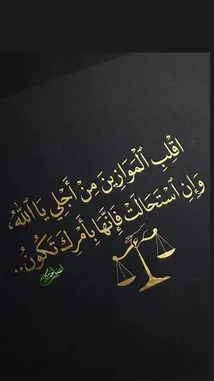 اقْلِبِ ٱلْمَوَازِينَ مِنْ أَجْلِي يَا ٱللهُ،
وَإِنِ ٱسْتَحَالَتْ فَإِنَّهَا بِأَمْرِكَ تَكُونُ..